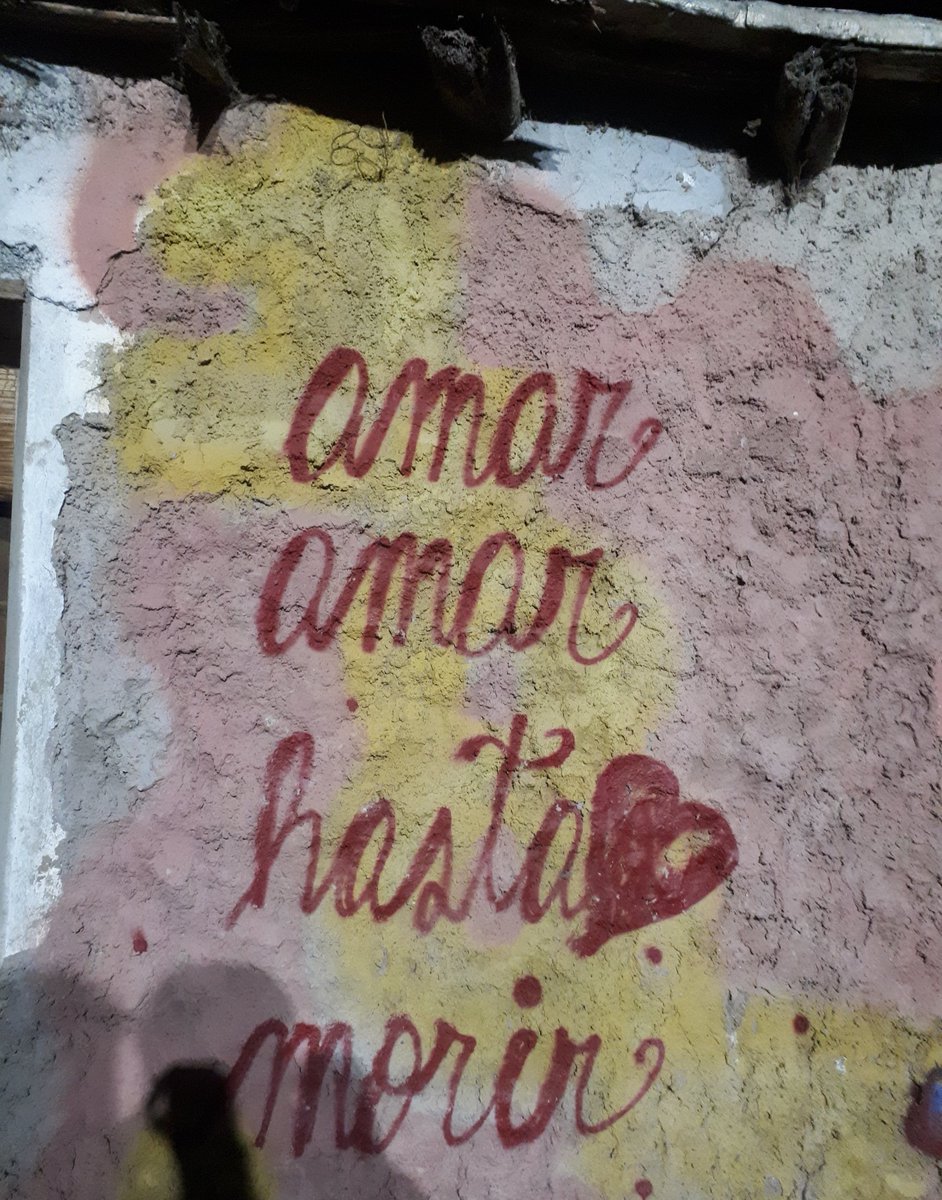 amar
amar
hasta
morir